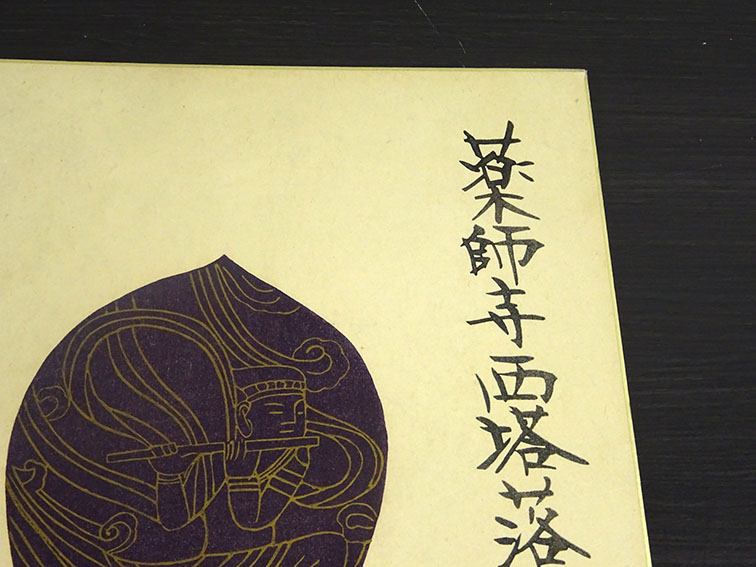 薬師寺西塔落